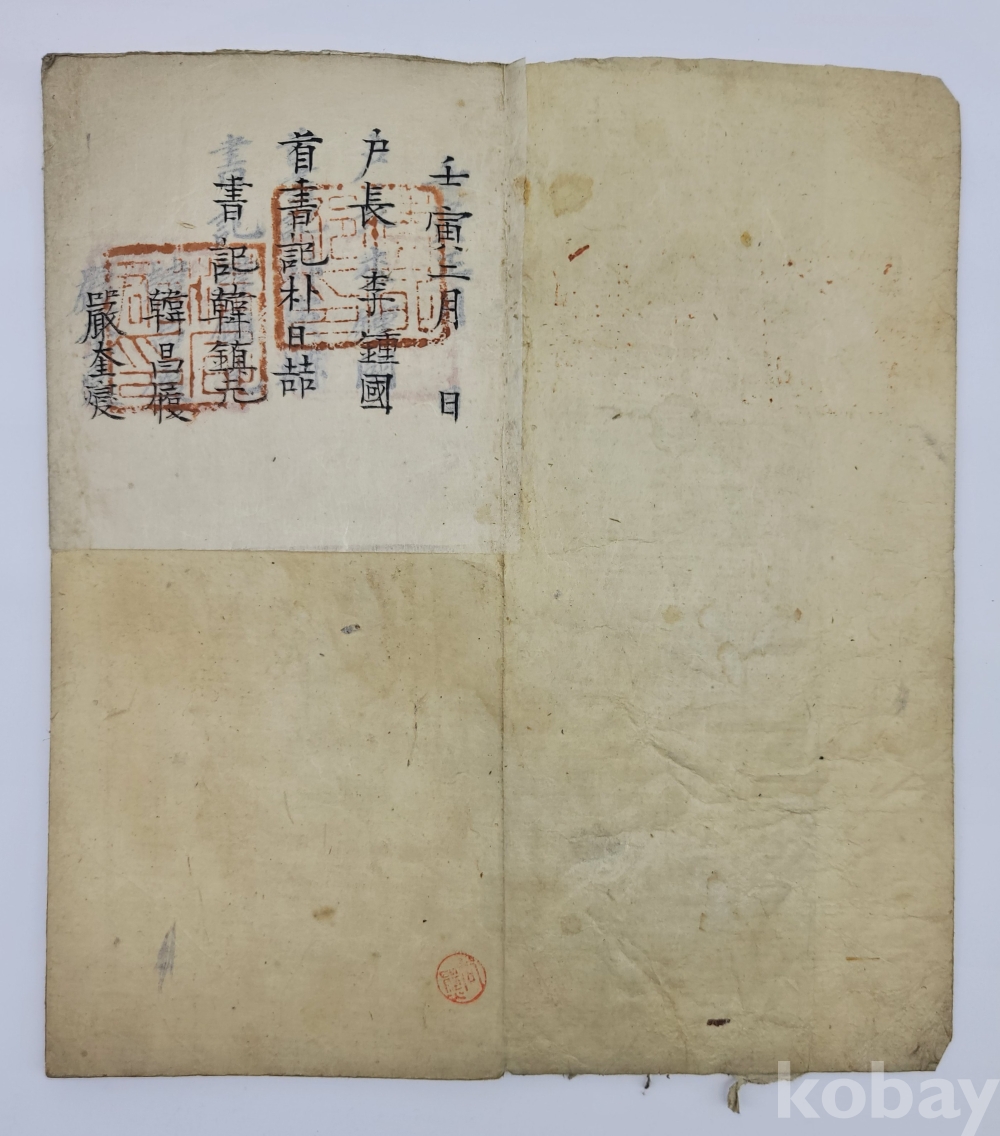 壬寅二月 日
户長 李鍾國
首書記朴日喆
書記韓鎮元
韓昌履
嚴奎
kobay